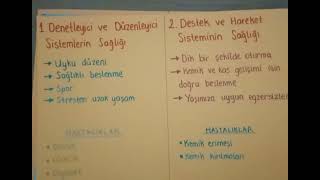 1. Denetleyici ve Düzenleyici
Sistemlerin Sağlığı
→ Uyku düzeni
→ Sağlıklı beslenme
→ Spor
→ Stresten uzak yaşam
HASTALIKLAR
2. Destek ve Hareket
Sisteminin Sağlığı
→ Dik bir şekilde oturma
→ Kemik ve kas gelişimi için
doğru beslenme
→ Yaşımıza uygun egzersizler
HASTALIKLAR
• Kemik erimesi
• Kemik kırılmaları